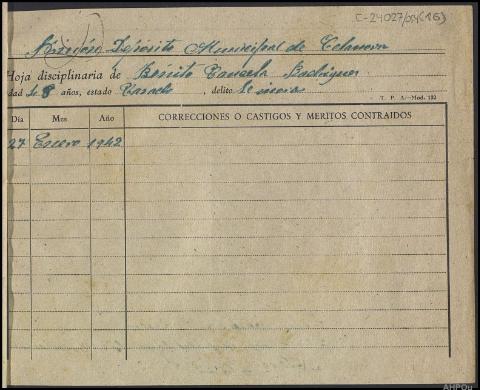 C-24027/04(16)
Depósito Municipal de Celanova
Hoja disciplinaria de Benito Rodríguez
dad años, estado Casado, delito
T. P. A.-Mod. 192
Día Mes Año CORRECCIONES O CASTIGOS Y MERITOS CONTRAIDOS
27 Enero 1942
AHPOu